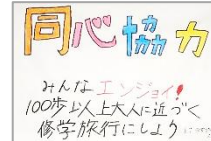 同心協力
みんなエンジョイ!
100歩以上大人に近づく
修学旅行にしよう